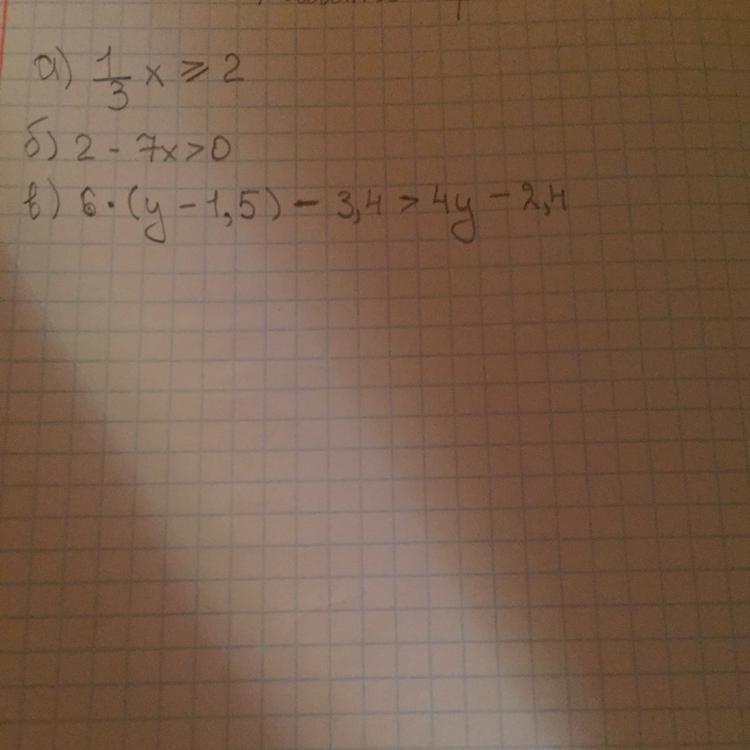 а) 1/3 x ⩾ 2
б) 2 - 7x > 0
в) 6 · (y - 1,5) - 3,4 > 4y - 2,4